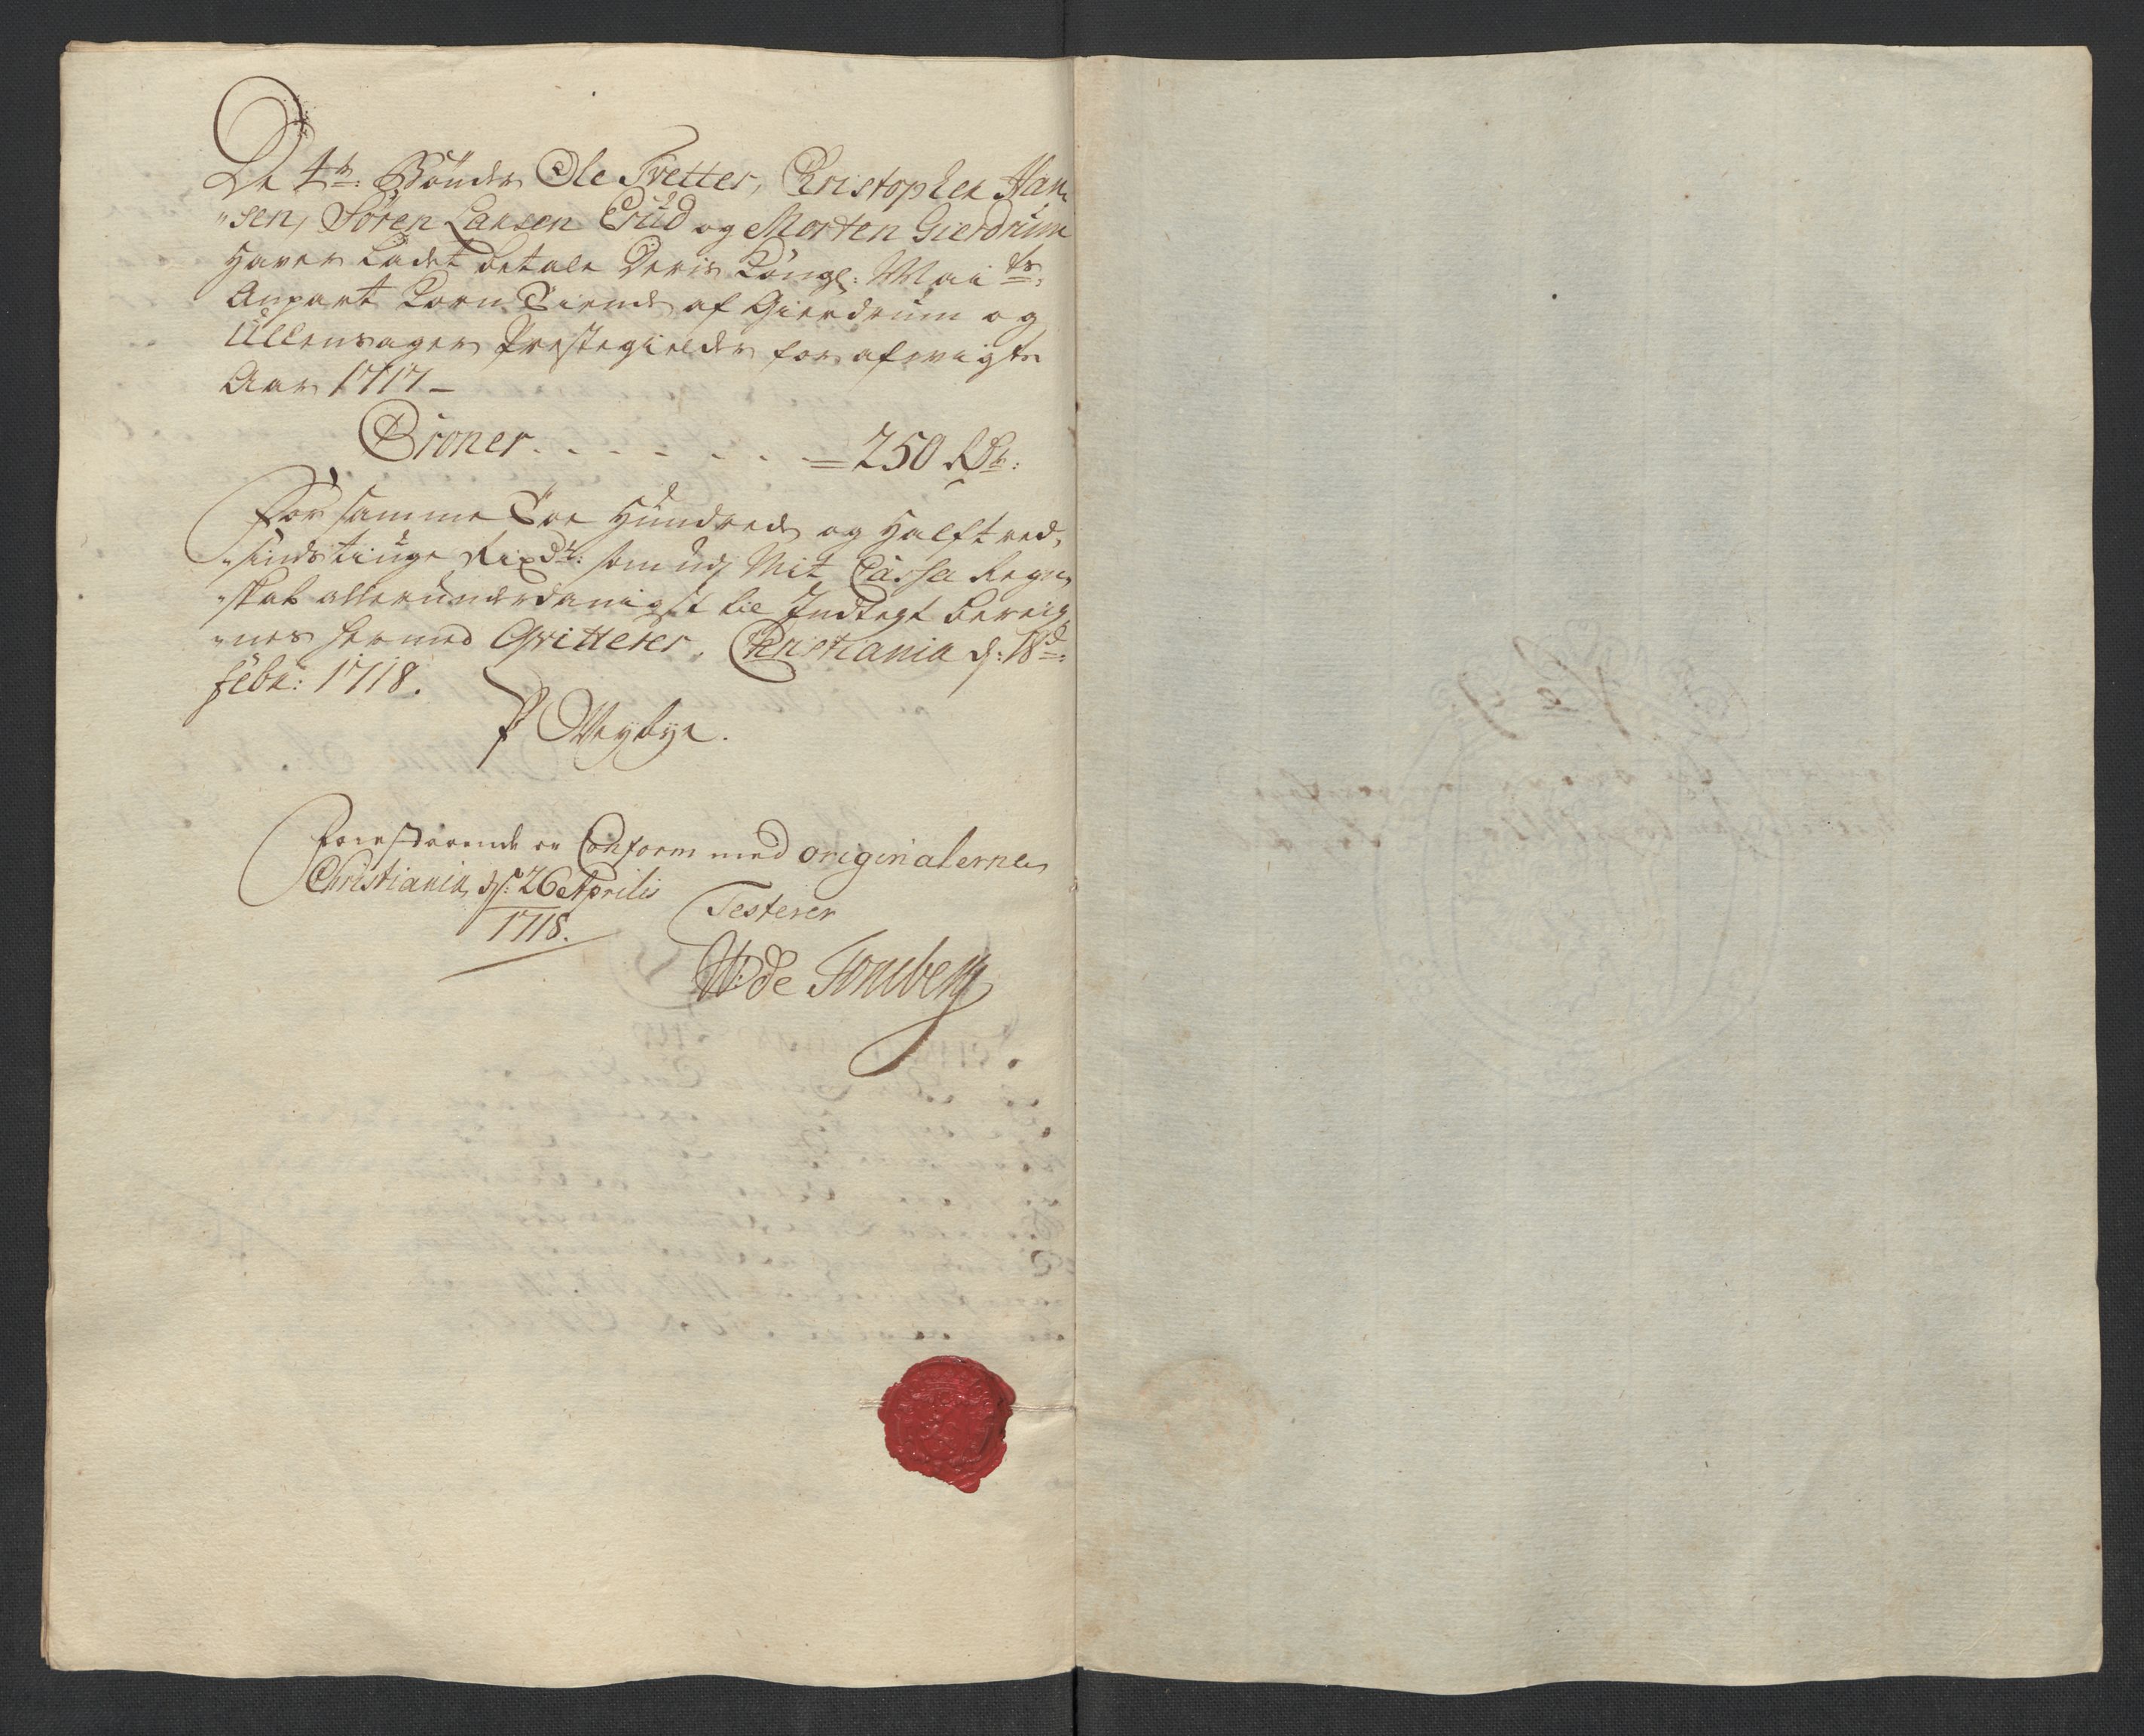 De 4re: Bönder Ole Tvetter, Christopher Han„
„sen, Sören Larsen Erüd og Morten Gierdrüm
Haver Ladet betale Deris Kongl: Mai ts:
Anpart Korn Tiende af Gierdrüm og
Üllensager Prestegielder for afvigte
Aar 1717 –
Croner. . . . . . . = 250 Rdr:
For samme Toe Hündrede og Halftred„
„sindstiuge Rixdr: som udj Mit Cassa Regn„
„skab allerunderdanigst til Indtegt bereig„
„nes hermed Qvitterer. Christiania d: 18de:
Febr: 1718.
P Weybye.
Forestaaende er Conform med originalerne
Christiania, d: 26 Aprilis
1718.
Testerer
W: de Tonsberg